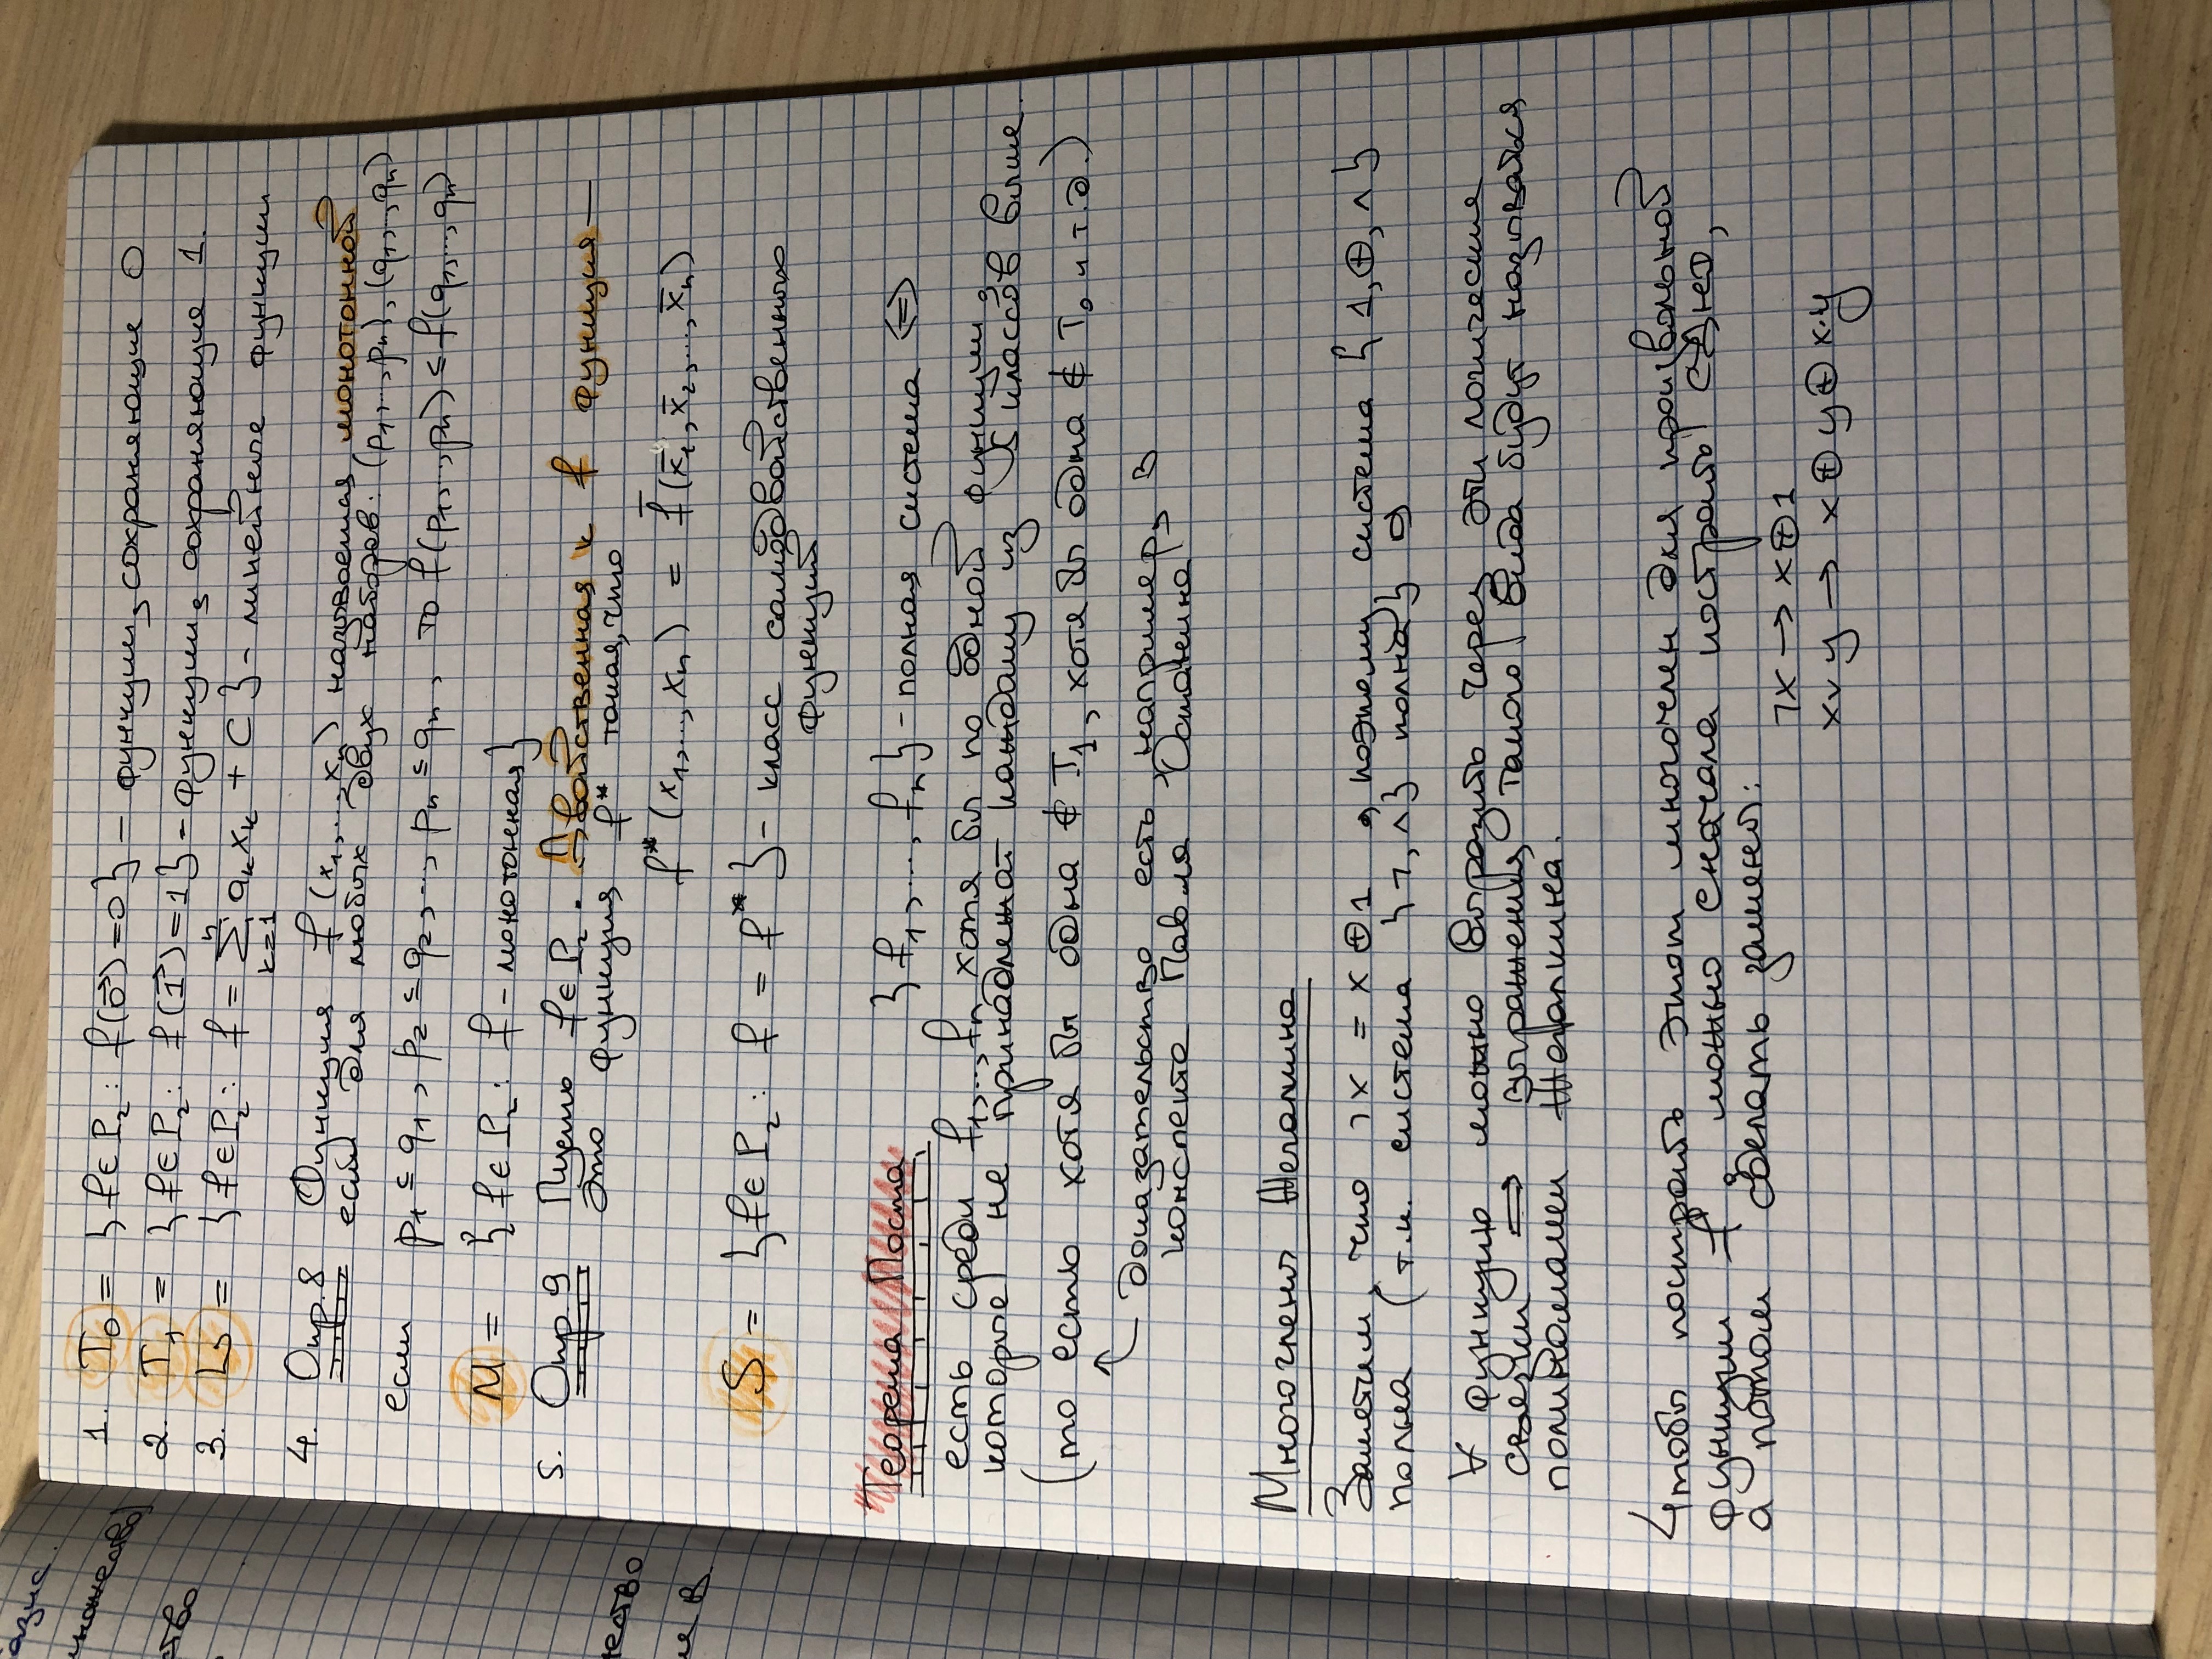 азис.
множество)
ство
жество
ие в
1. T₀ = { f ∈ P₂ : f(0⃗) = 0 } – функции, сохраняющие 0
2. T₁ = { f ∈ P₂ : f(1⃗) = 1 } – функции, сохраняющие 1.
3. L = { f ∈ P₂ : f = ∑ₖ₌₁ⁿ aₖxₖ + C } – линейные функции
4. Опр. 8 Функция f (x₁,...,xₙ) называется монотонной
если для любых двух наборов: (p₁,...,pₙ), (q₁,...,qₙ)
если p₁ ≤ q₁, p₂ ≤ q₂, ..., pₙ ≤ qₙ, то f(p₁,...,pₙ) ≤ f(q₁,...,qₙ)
M = { f ∈ P₂ : f – монотонная }
5. Опр. 9 Пусть f ∈ P₂. Двойственная к f функция —
это функция f* такая, что
f* (x₁,...,xₙ) = f̅(x̅₁, x̅₂, ..., x̅ₙ)
S = { f ∈ P₂ : f = f* } – класс самодвойственных
функций
Теорема Поста { f₁,...,fₙ } – полная система ⟺
есть среди f₁,...,fₙ хотя бы по одной функции,
которые не принадлежат каждому из 5 классов выше.
(то есть хотя бы одна ∉ T₁, хотя бы одна ∉ T₀ и т.д.)
↖ доказательство есть, например, в
конспекте Павла Останина
Многочлены Жегалкина
Заметим, что ¬x = x ⊕ 1, поэтому система { 1, ⊕, ∧ }
полна (т.к. система { ¬, ∧ } полна }
∀ функцию можно выразить через эти логические
связки ⟹ выражения такого вида будут называться
полиномами Жегалкина.
Чтобы построить этот многочлен для произвольной
функции f, можно сначала построить СДНФ,
а потом сделать замены:
¬x → x ⊕ 1
x ∨ y → x ⊕ y ⊕ x·y